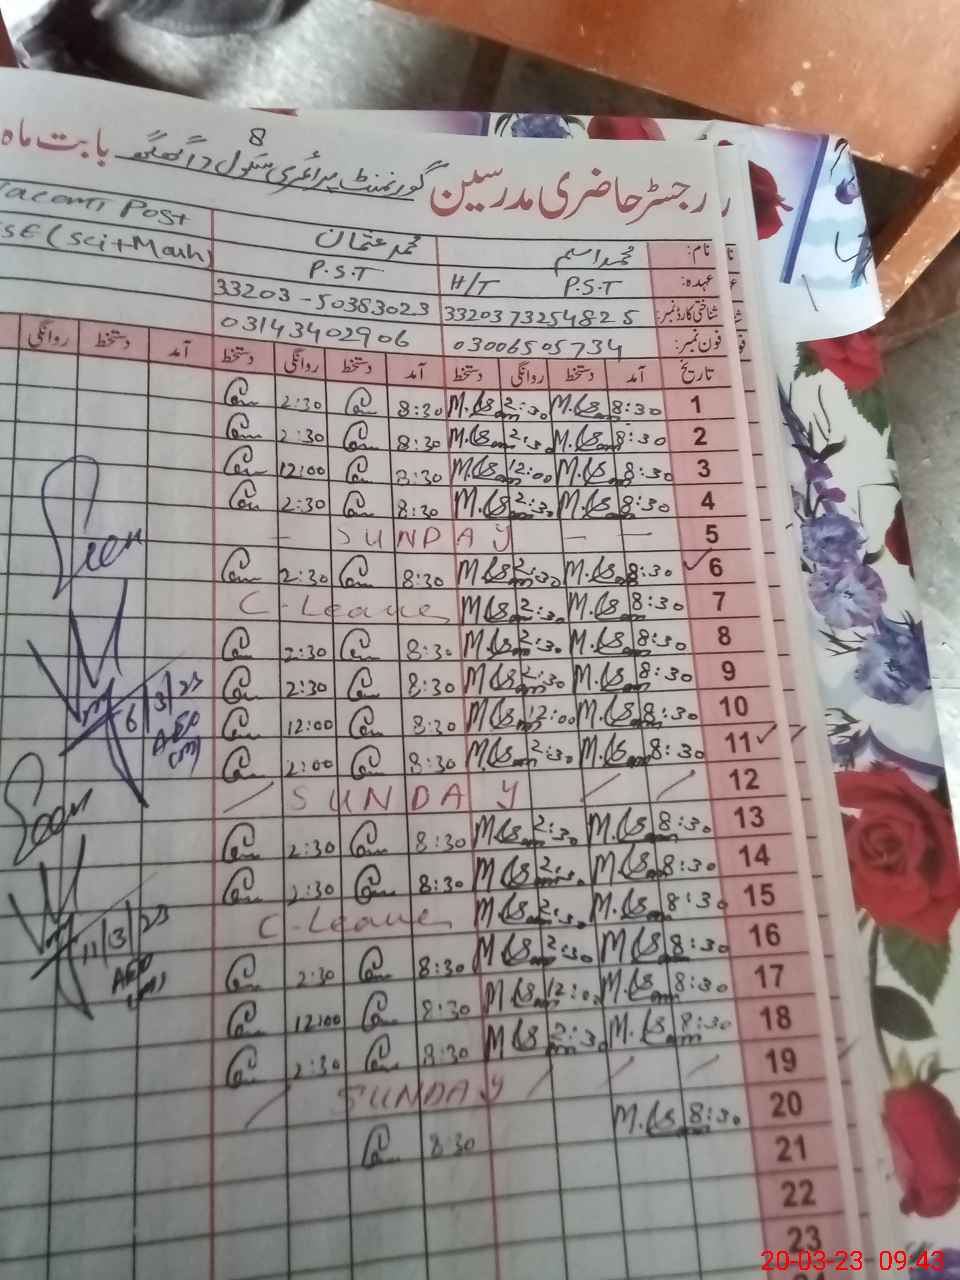 8
رجسٹر حاضری مدرسین گورنمنٹ پرائمری سکول بابت ماہ
نام: محمد اسلم محمد عثمان Post
عہدہ: P.S.T H/T P.S.T (Sci+Math)
شناختی کارڈ نمبر: 3320373254825 33203-50383023
فون نمبر: 03006505734 03143402906
تاریخ آمد دستخط روانگی دستخط آمد دستخط روانگی دستخط آمد دستخط روانگی
1 8:30 2:30 8:30 2:30
2 8:30 2:30 8:30 2:30
3 8:30 12:00 8:30 12:00
4 8:30 2:30 8:30 2:30
5 SUNDAY
6 8:30 2:30 8:30 2:30
7 8:30 2:30 C-Leave
8 8:30 2:30 8:30 2:30
9 8:30 2:30 8:30 2:30
10 8:30 12:00 8:30 12:00
11 8:30 2:30 8:30 2:00
12 SUNDAY
13 8:30 2:30 8:30 2:30
14 8:30 2:30 8:30 2:30
15 8:30 2:30 C-Leave
16 8:30 2:30 8:30 2:30
17 8:30 12:00 8:30 12:00
18 8:30 2:30 8:30 2:30
19 SUNDAY
20 8:30 8:30
21
22
23
Seen
6/3/23
AEO
(M)
Seen
11/3/23
AEO
(M)
20-03-23 09:43